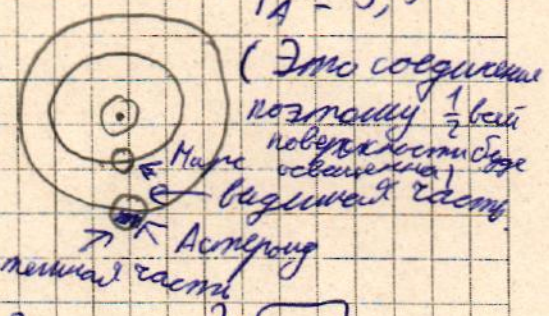 (Это соединение
поэтому 1/2 всей
поверхности буде
освещенна)
Марс
видимая часть
Астероид
темная часть